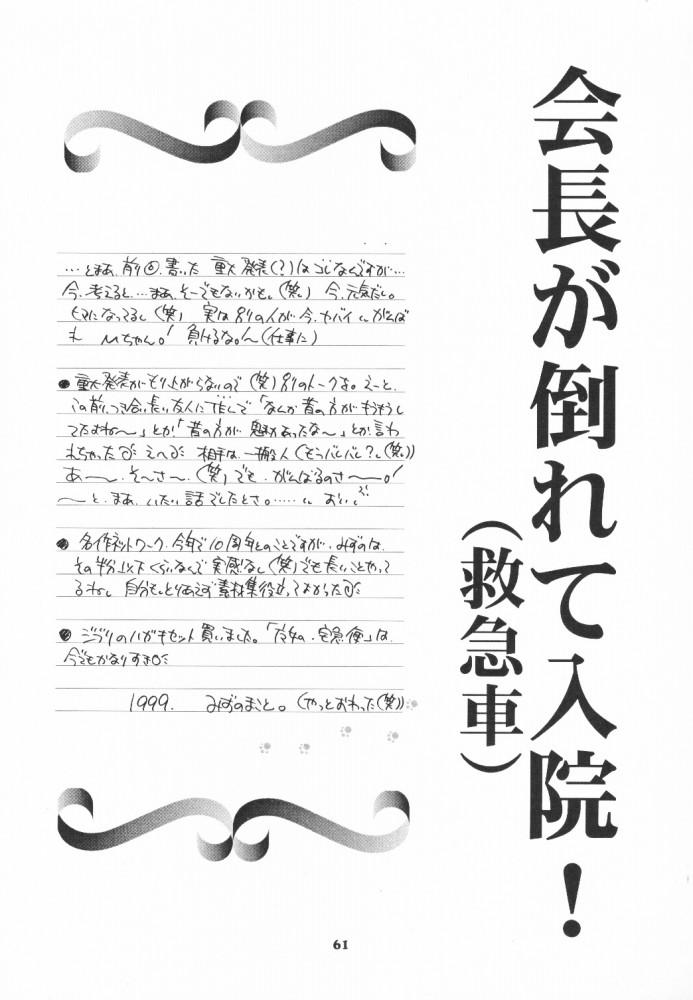 会長が倒れて入院！
（救急車）
…とまあ、前回書いた 重大発表(？)はコレなんですが…
今、考えると…まあ、そーでもないかも。(笑) 今、元気だし。
ヒマになってるし(笑) 実は別の人が今、ヤバイ がんば
れ Mちゃん。！ 負けるな。！〜(仕事に)
● 重大発表がもり上がらないので(笑)別のトークを。えーと、
この前、つき合い長い友人に 「なんか昔の方がもうもうし
てたよね〜」とか「昔の方が 魅力あったな〜」とか言わ
れちゃった えへ 相手は、一般人(そうバレバレ？(笑))
あ〜、そ〜さ〜、(笑)でも、がんばるのさ〜〜。！
〜と、まあ、いたい話でしたとさ。…… おいで
● 名作ネットワーク、今年で10周年とのことですが、みずのは、
その半分以下くらいなんで実感なし(笑)でも長いことやって
るわね。自分も、とりあえず素材集役立ってよかった
● ジブリのハガキセット買いました。「魔女の宅急便」は、
今でもかなりすき
1999. みずのまこと。(やっとおわった(笑))
61